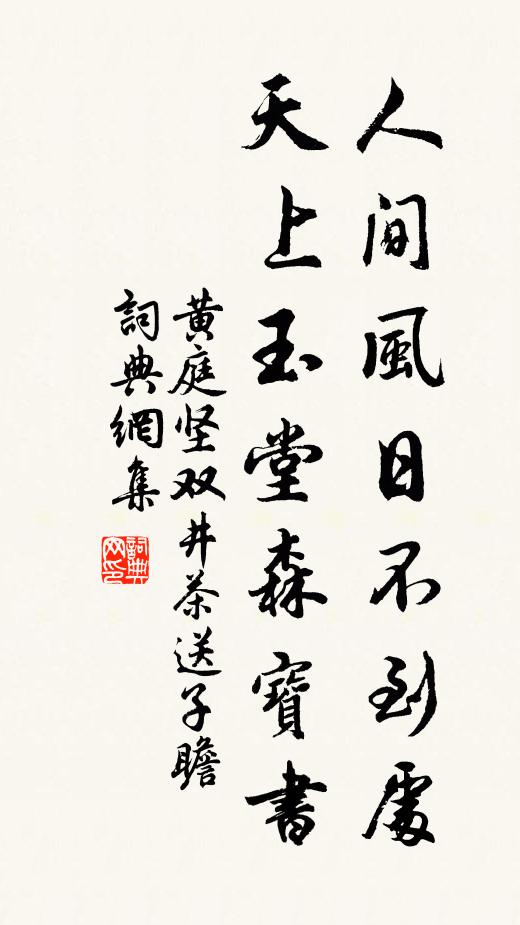 人间風日不到處
天上玉堂森寶書
黄庭坚双井茶送子瞻
詞典網集
詞典网印